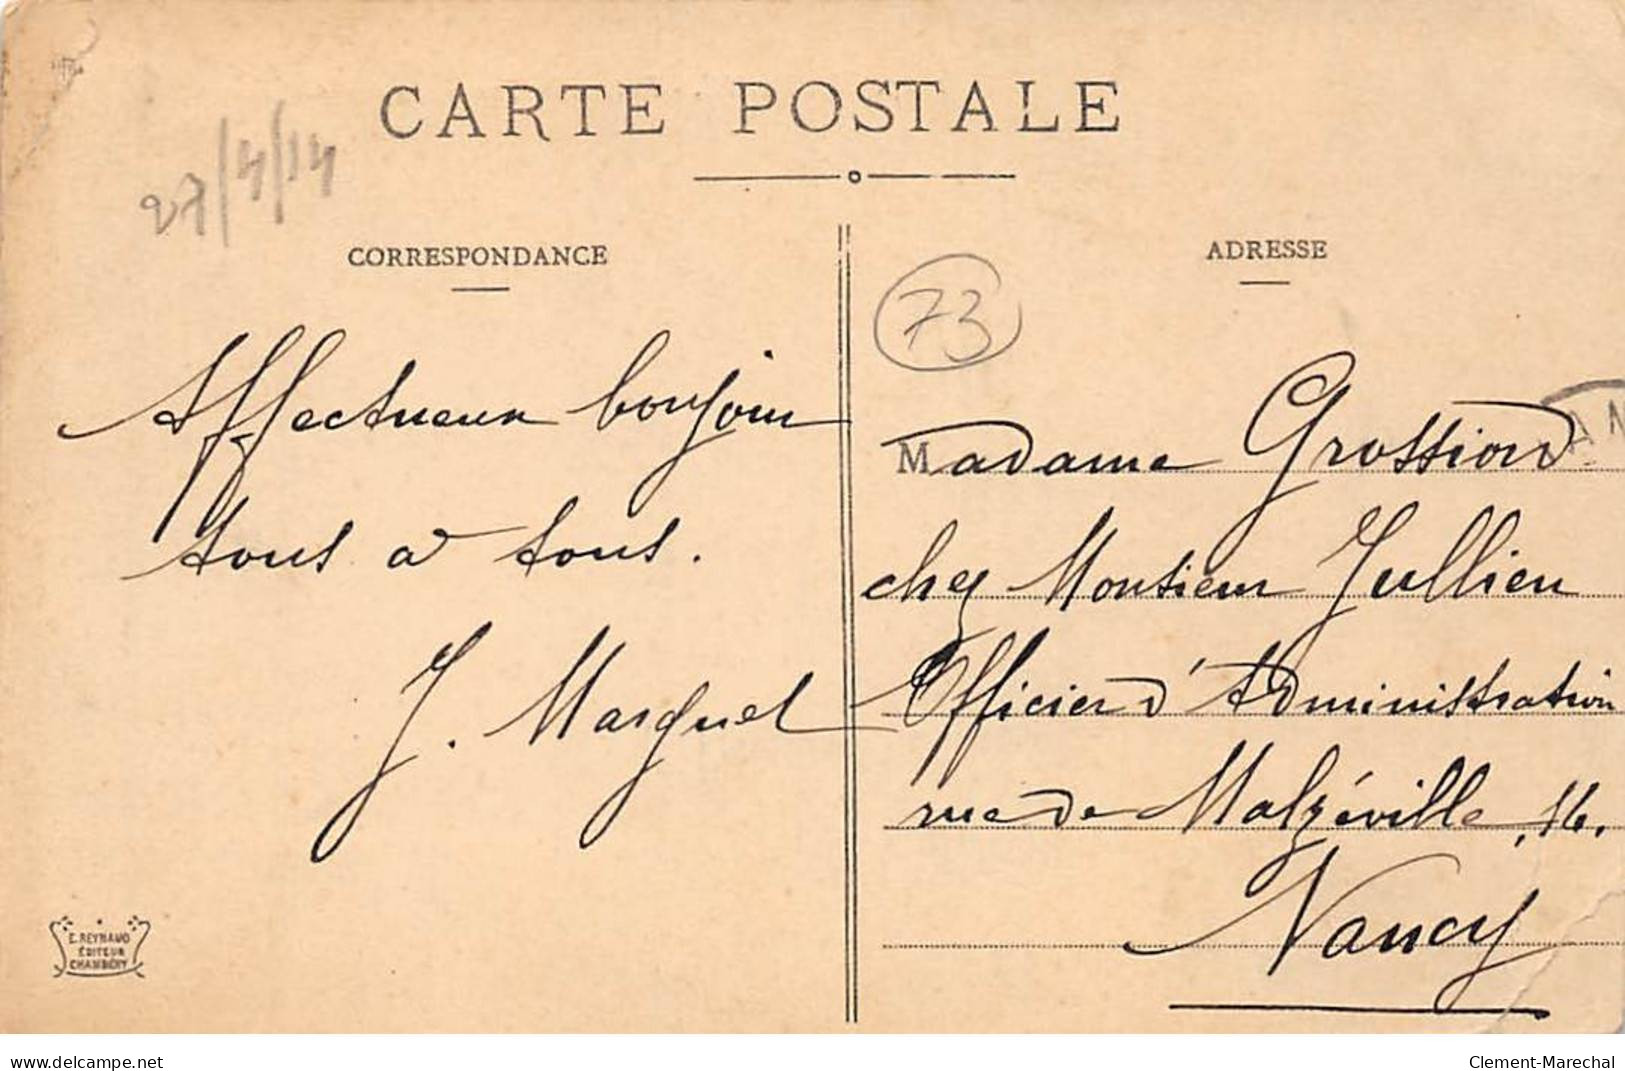 CARTE POSTALE
27/4/14
CORRESPONDANCE
Affectueux bonjour
tous à tous.
J. Marquet
E. REYNAUD
ÉDITEUR
CHAMBÉRY
ADRESSE
73
Madame Grossion
chez Monsieur Jullien
Officier d'Administration
rue de Malzéville, 16.
Nancy
www.delcampe.net
Clement-Marechal